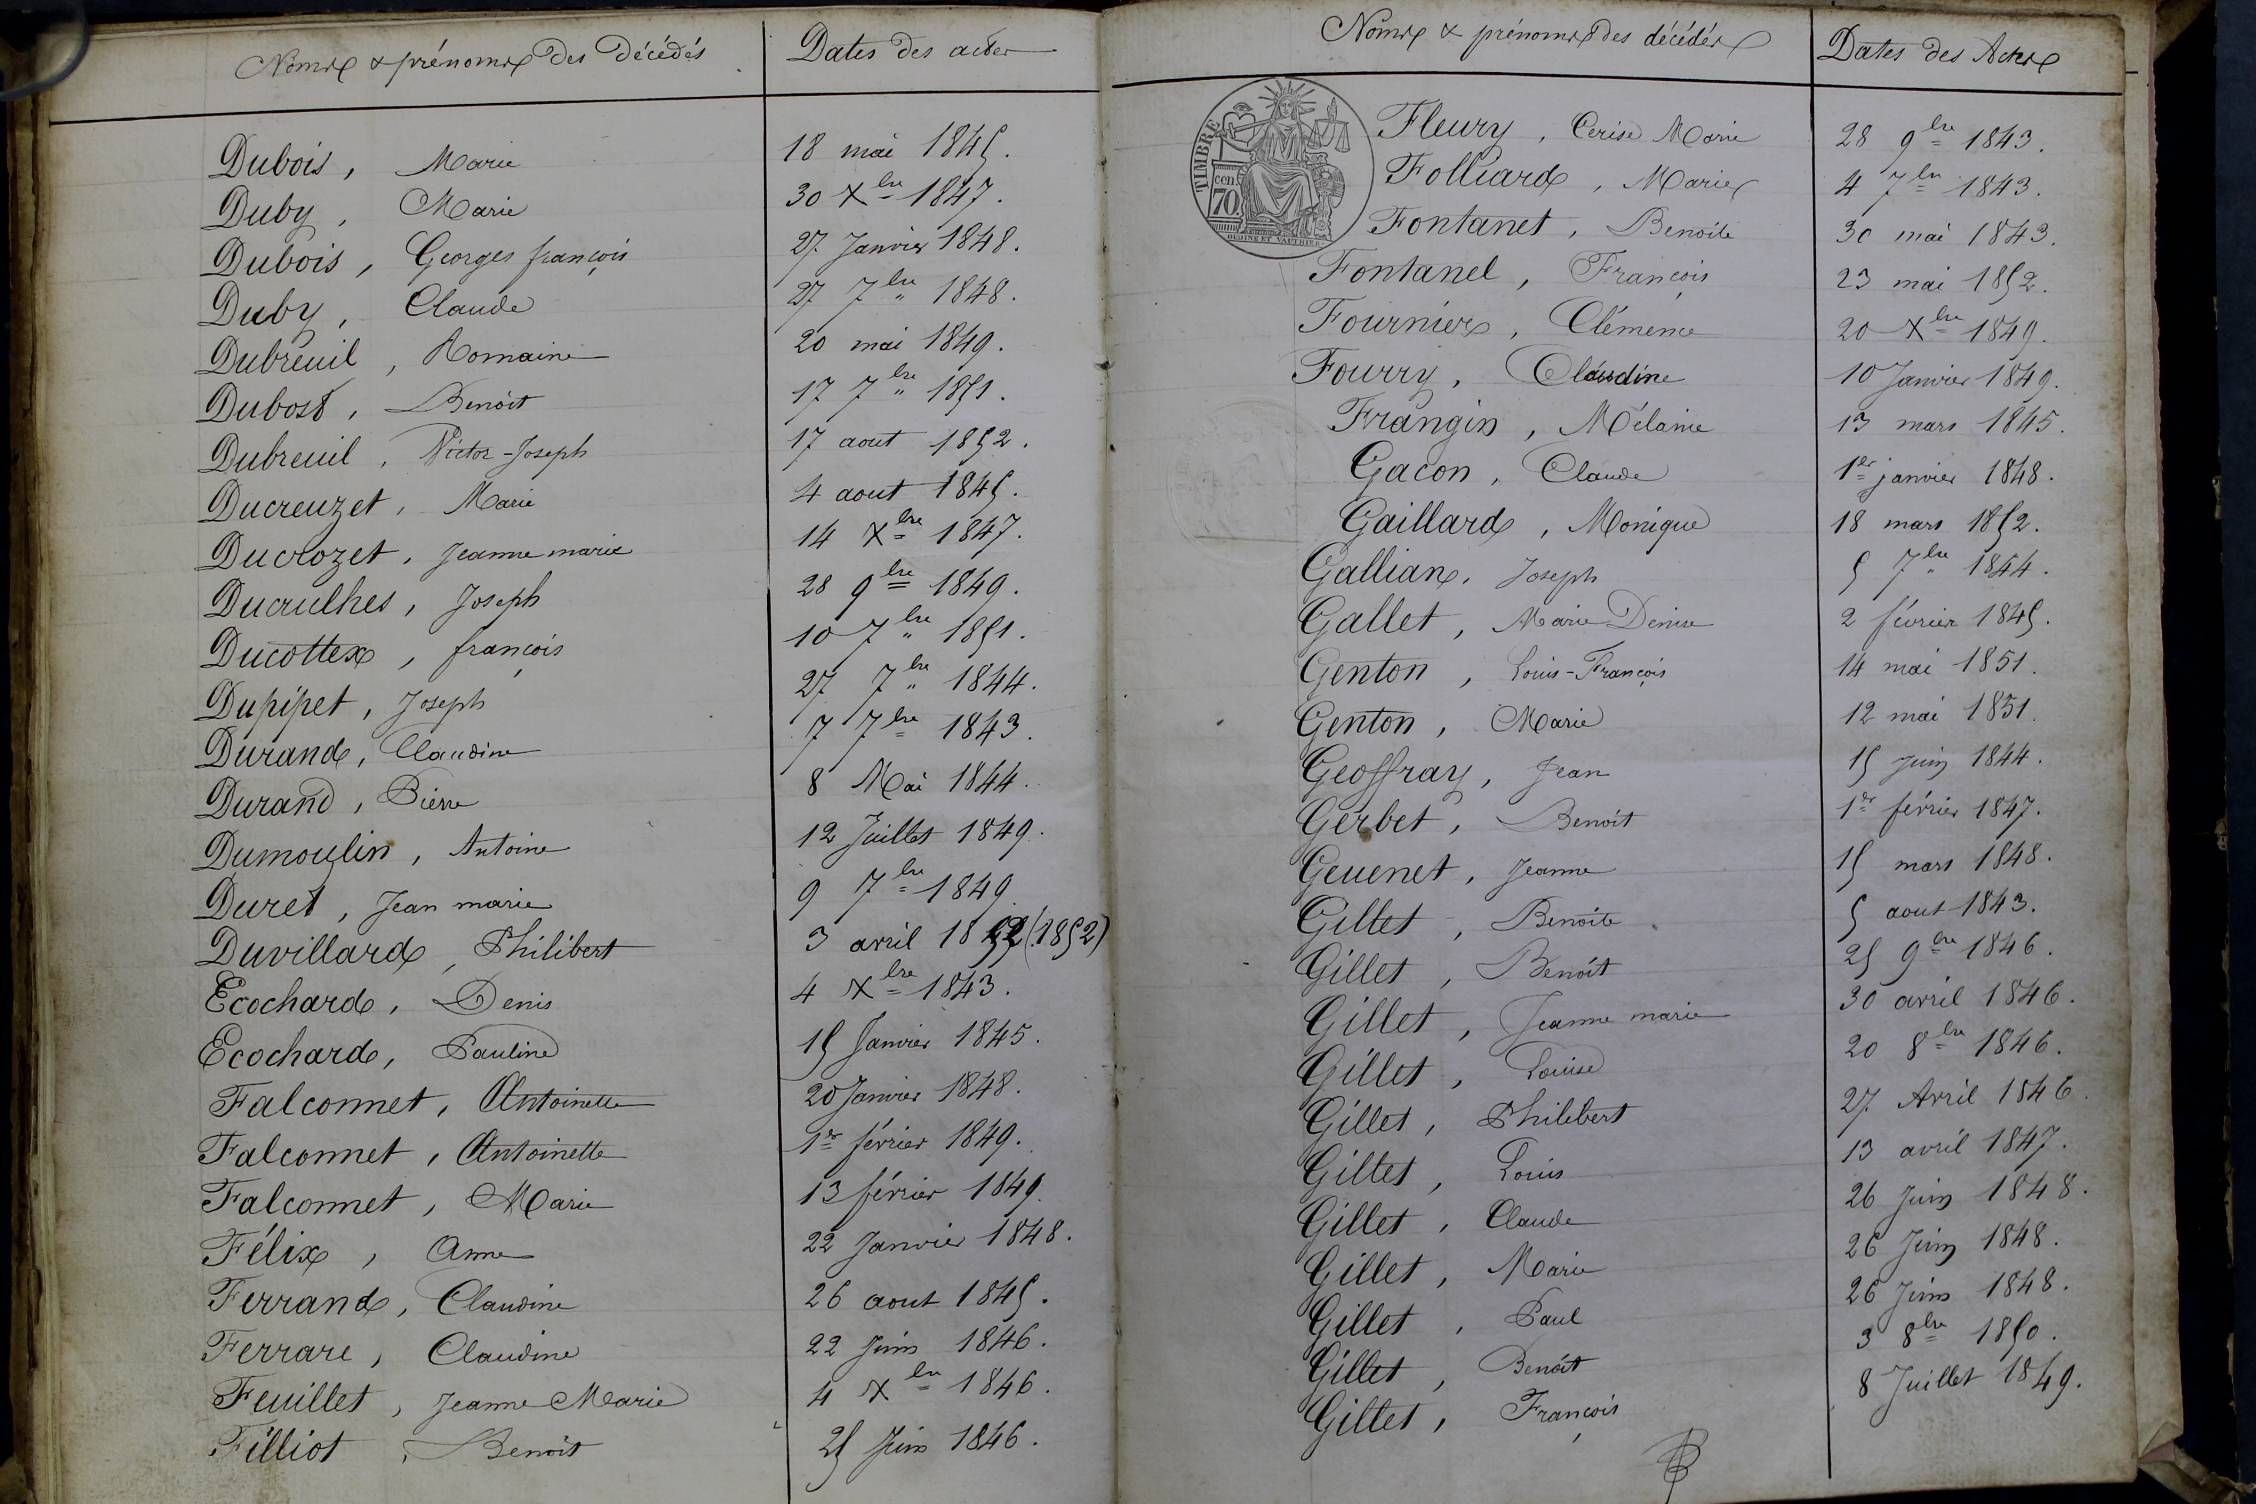 Noms & prénoms des décédés Dates des actes
Dubois, Marie 18 mai 1845.
Duby, Marie 30 Xbre 1847.
Dubois, Georges françois 27 Janvier 1848.
Duby, Claude 27 7bre 1848.
Dubreuil, Romaine 20 mai 1849.
Dubost, Benoit 17 7bre 1851.
Dubreuil, Victor-Joseph 17 aout 1852.
Ducreuzet, Marie 4 aout 1845.
Ducrozet, Jeanne marie 14 Xbre 1847.
Ducrulhes, Joseph 28 9bre 1849.
Ducottex, françois 10 7bre 1851.
Dupipet, Joseph 27 7bre 1844.
Durand, Claudine 7 7bre 1843.
Durand, Pierre 8 Mai 1844.
Dumoulin, Antoine 12 Juillet 1849.
Duret, Jean marie 9 7bre 1849.
Duvillard, Philibert 3 avril 1852 (1852)
Ecochard, Denis 4 Xbre 1843.
Ecochard, Pauline 15 Janvier 1845.
Falconnet, Antoinette 20 Janvier 1848.
Falconnet, Antoinette 1er février 1849.
Falconnet, Marie 13 février 1849.
Félix, Anne 22 Janvier 1848.
Ferrand, Claudine 26 aout 1845.
Ferrare, Claudine 22 Juin 1846.
Feuillet, Jeanne Marie 4 Xbre 1846.
Filliot, Benoit 25 Juin 1846.
Noms & prénoms des décédés Dates des Actes
TIMBRE
cen
70
OUDINE ET VAUTHIER
Fleury, Cerise Marie 28 9bre 1843.
Folliard, Marie 4 7bre 1843.
Fontanet, Benoite 30 mai 1843.
Fontanel, François 23 mai 1852.
Fournier, Clémence 20 Xbre 1849.
Fourry, Claudine 10 Janvier 1849.
Frangin, Mélanie 13 mars 1845.
Gacon, Claude 1er janvier 1848.
Gaillard, Monique 18 mars 1852.
Gallian, Joseph 5 7bre 1844.
Gallet, Marie Denise 2 février 1845.
Genton, Louis-François 14 mai 1851.
Genton, Marie 12 mai 1851.
Geoffray, Jean 15 juin 1844.
Gerbet, Benoit 1er février 1847.
Geuenet, Jeanne 15 mars 1848.
Gillet, Benoite 5 aout 1843.
Gillet, Benoit 25 9bre 1846.
Gillet, Jeanne marie 30 avril 1846.
Gillet, Louise 20 8bre 1846.
Gillet, Philibert 27 Avril 1846.
Gillet, Louis 13 avril 1847.
Gillet, Claude 26 Juin 1848.
Gillet, Marie 26 Juin 1848.
Gillet, Paul 26 Juin 1848.
Gillet, Benoit 3 8bre 1850.
Gillet, François 8 Juillet 1849.